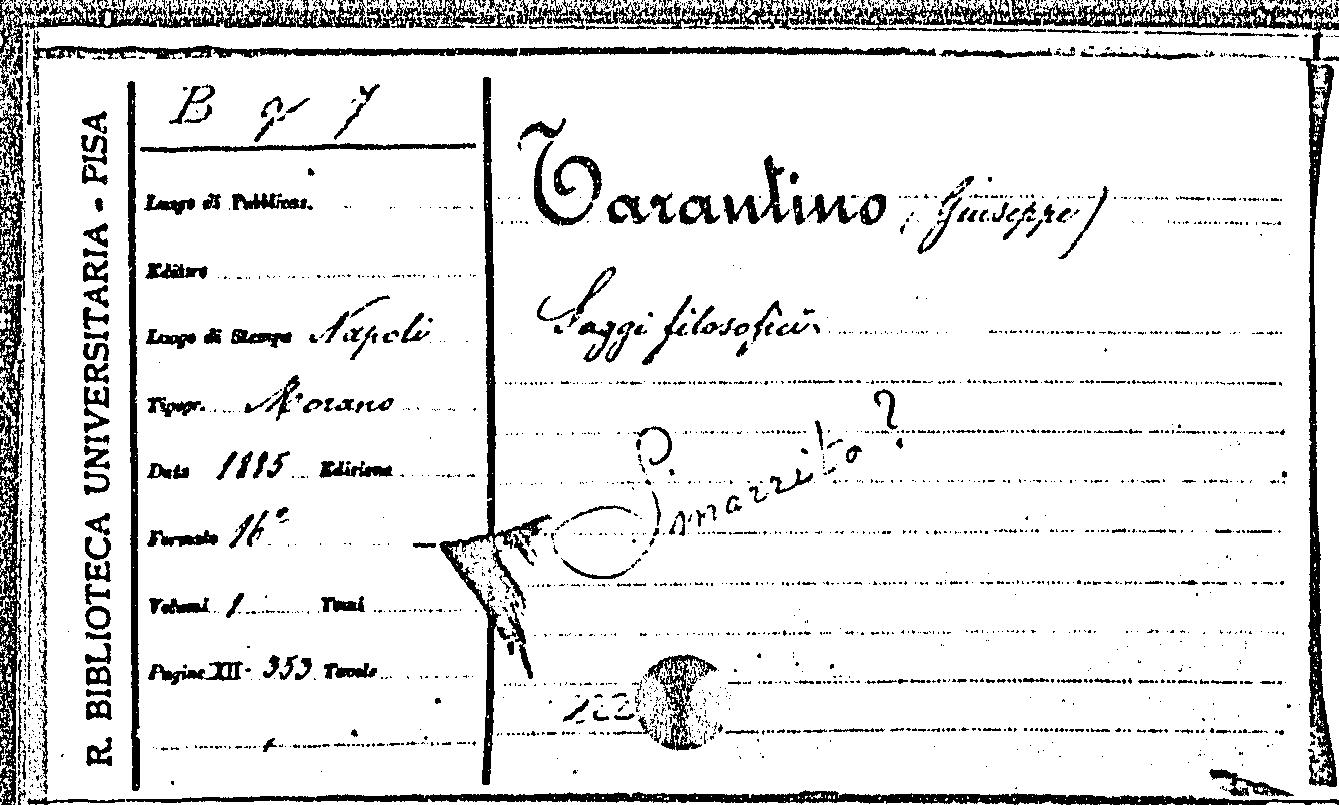 R. BIBLIOTECA UNIVERSITARIA - PISA
B q 7
Luogo di Pubblicaz.
Editore
Luogo di Stampa Napoli
Tipogr. Morano
Data 1885 Edizione
Formato 16º
Volumi 1 Tomi
Pagine XII-353 Tavole
Tarantino (Giuseppe)
Saggi filosofici.
Smarrito?